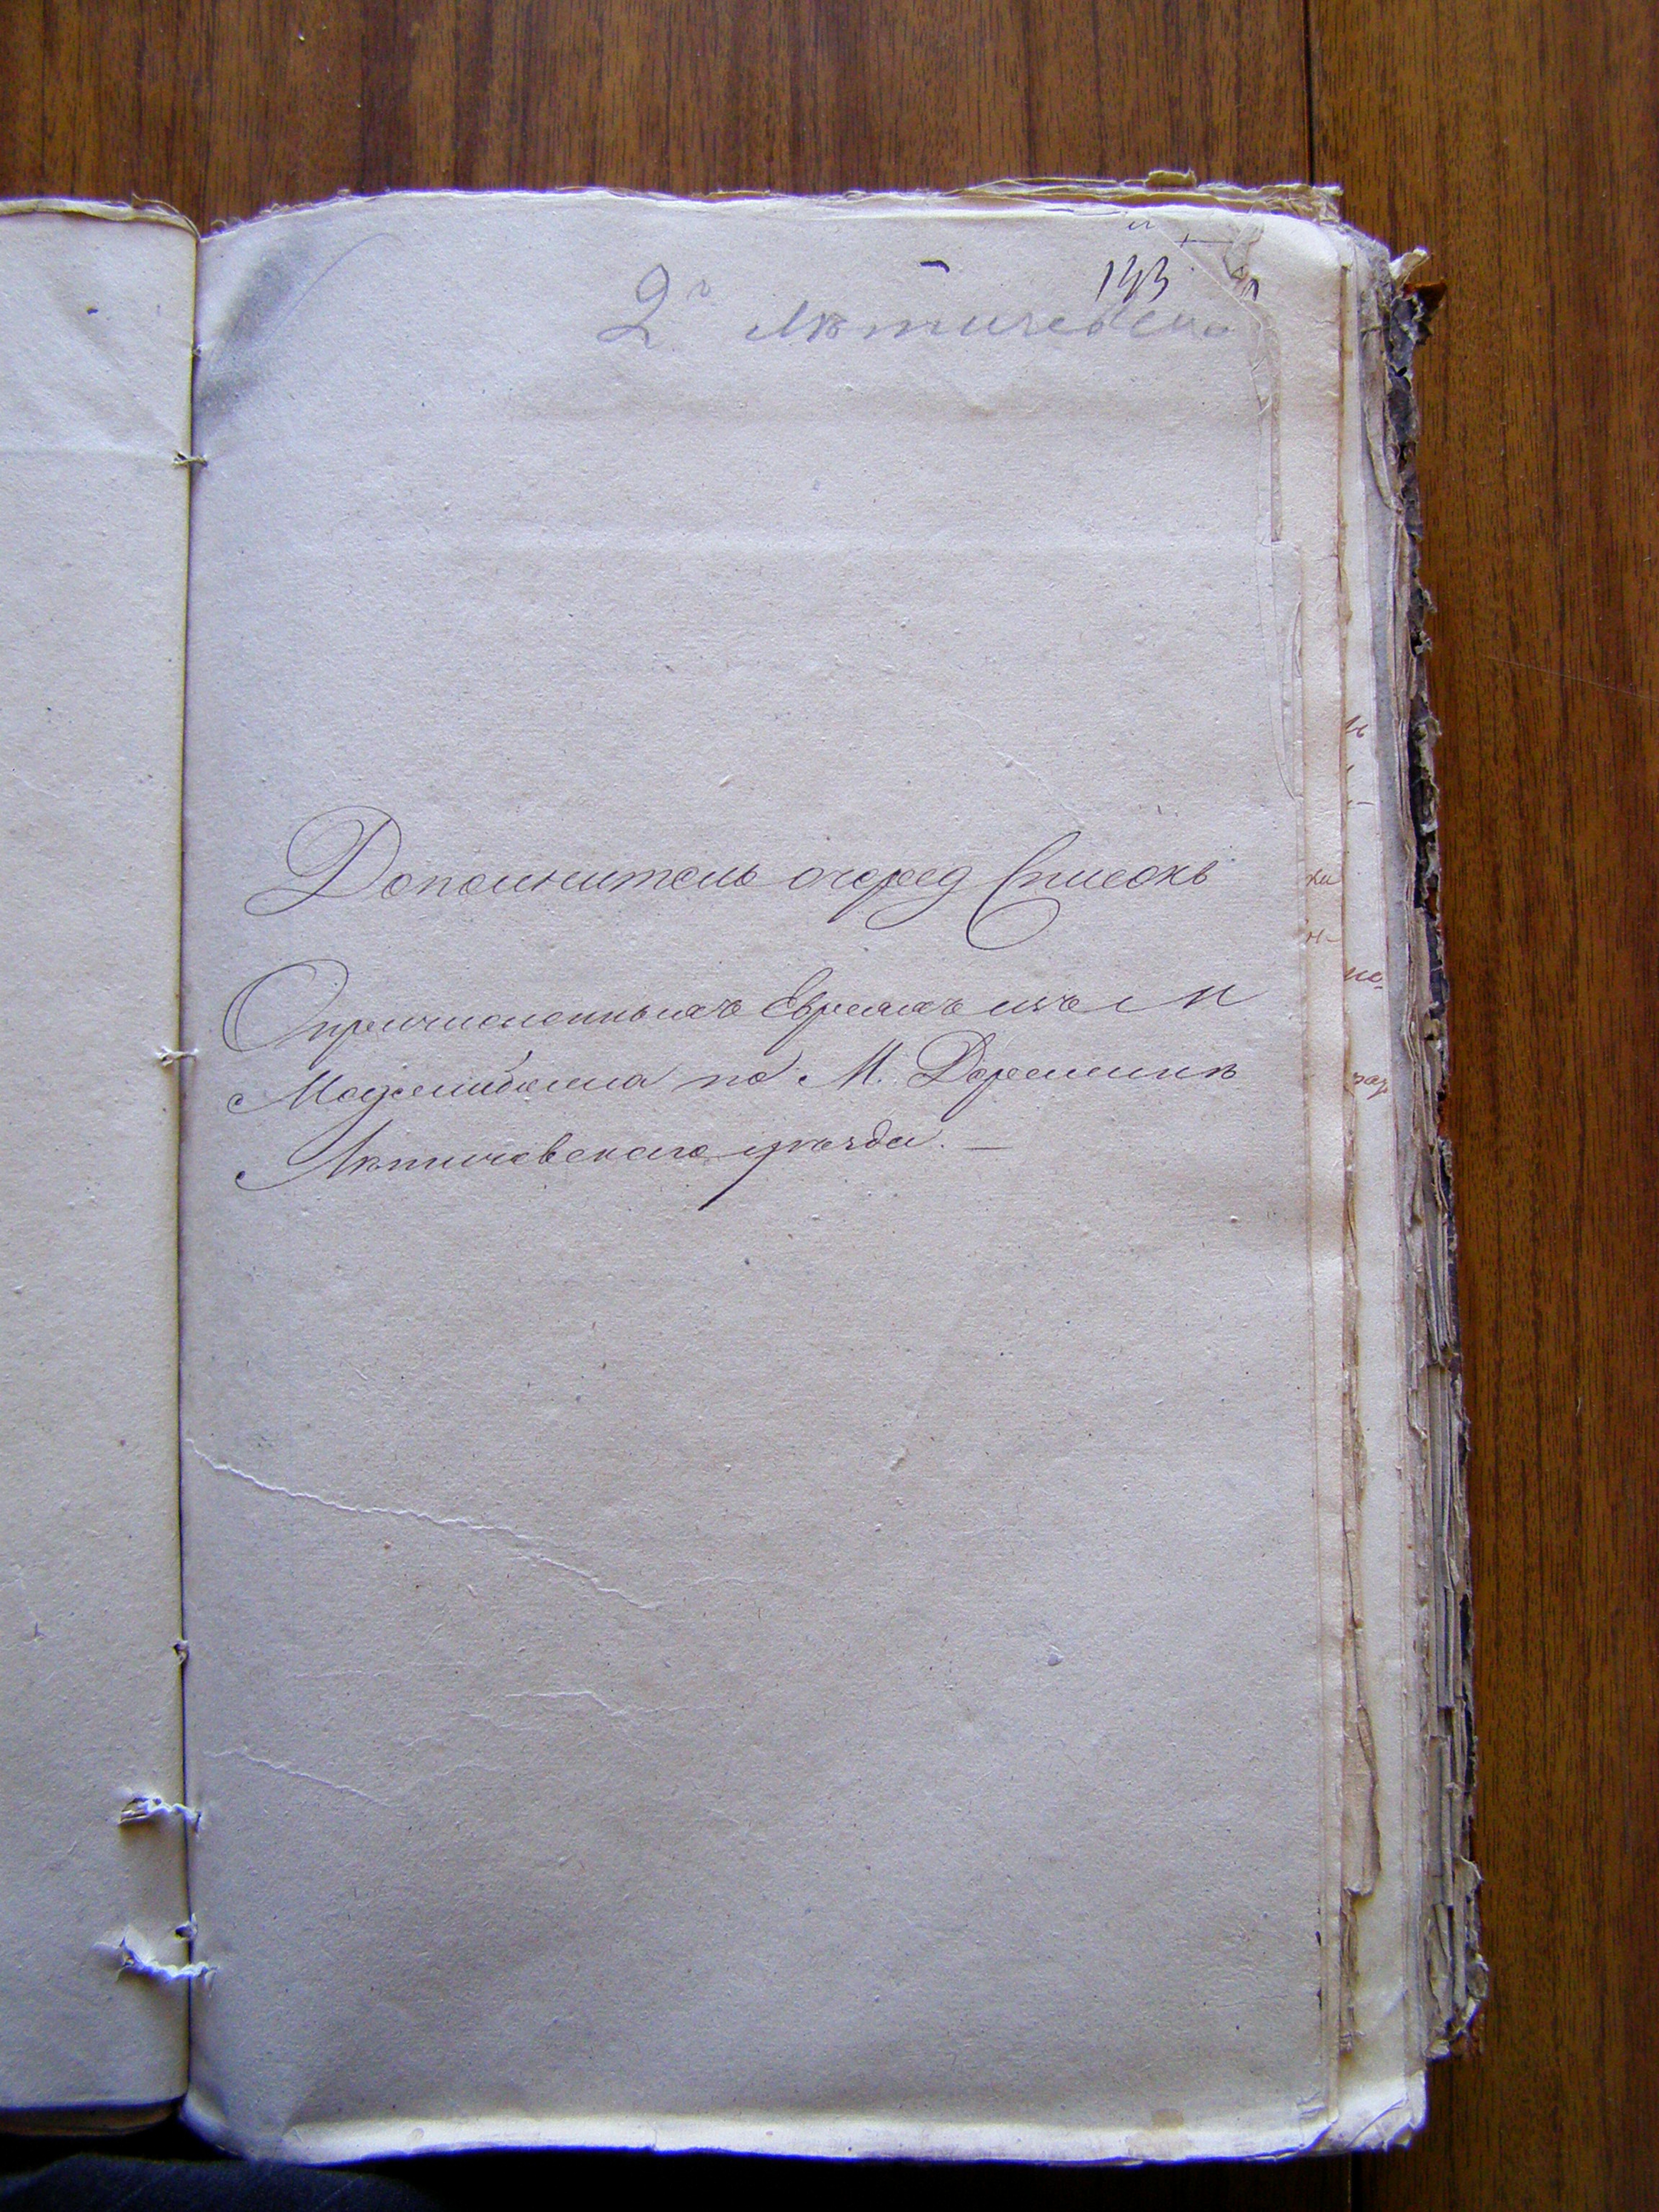 143
2й Лѣтичевск
Дополнитель очеред Списокъ
О причисленныхъ Евреяхъ изъ М
Меджибожа по М. Деражнѣ
Лѣтичевскаго уѣзда. —